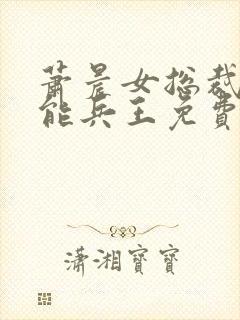 萧晨女总裁
能兵王免費
瀟湘寶寶